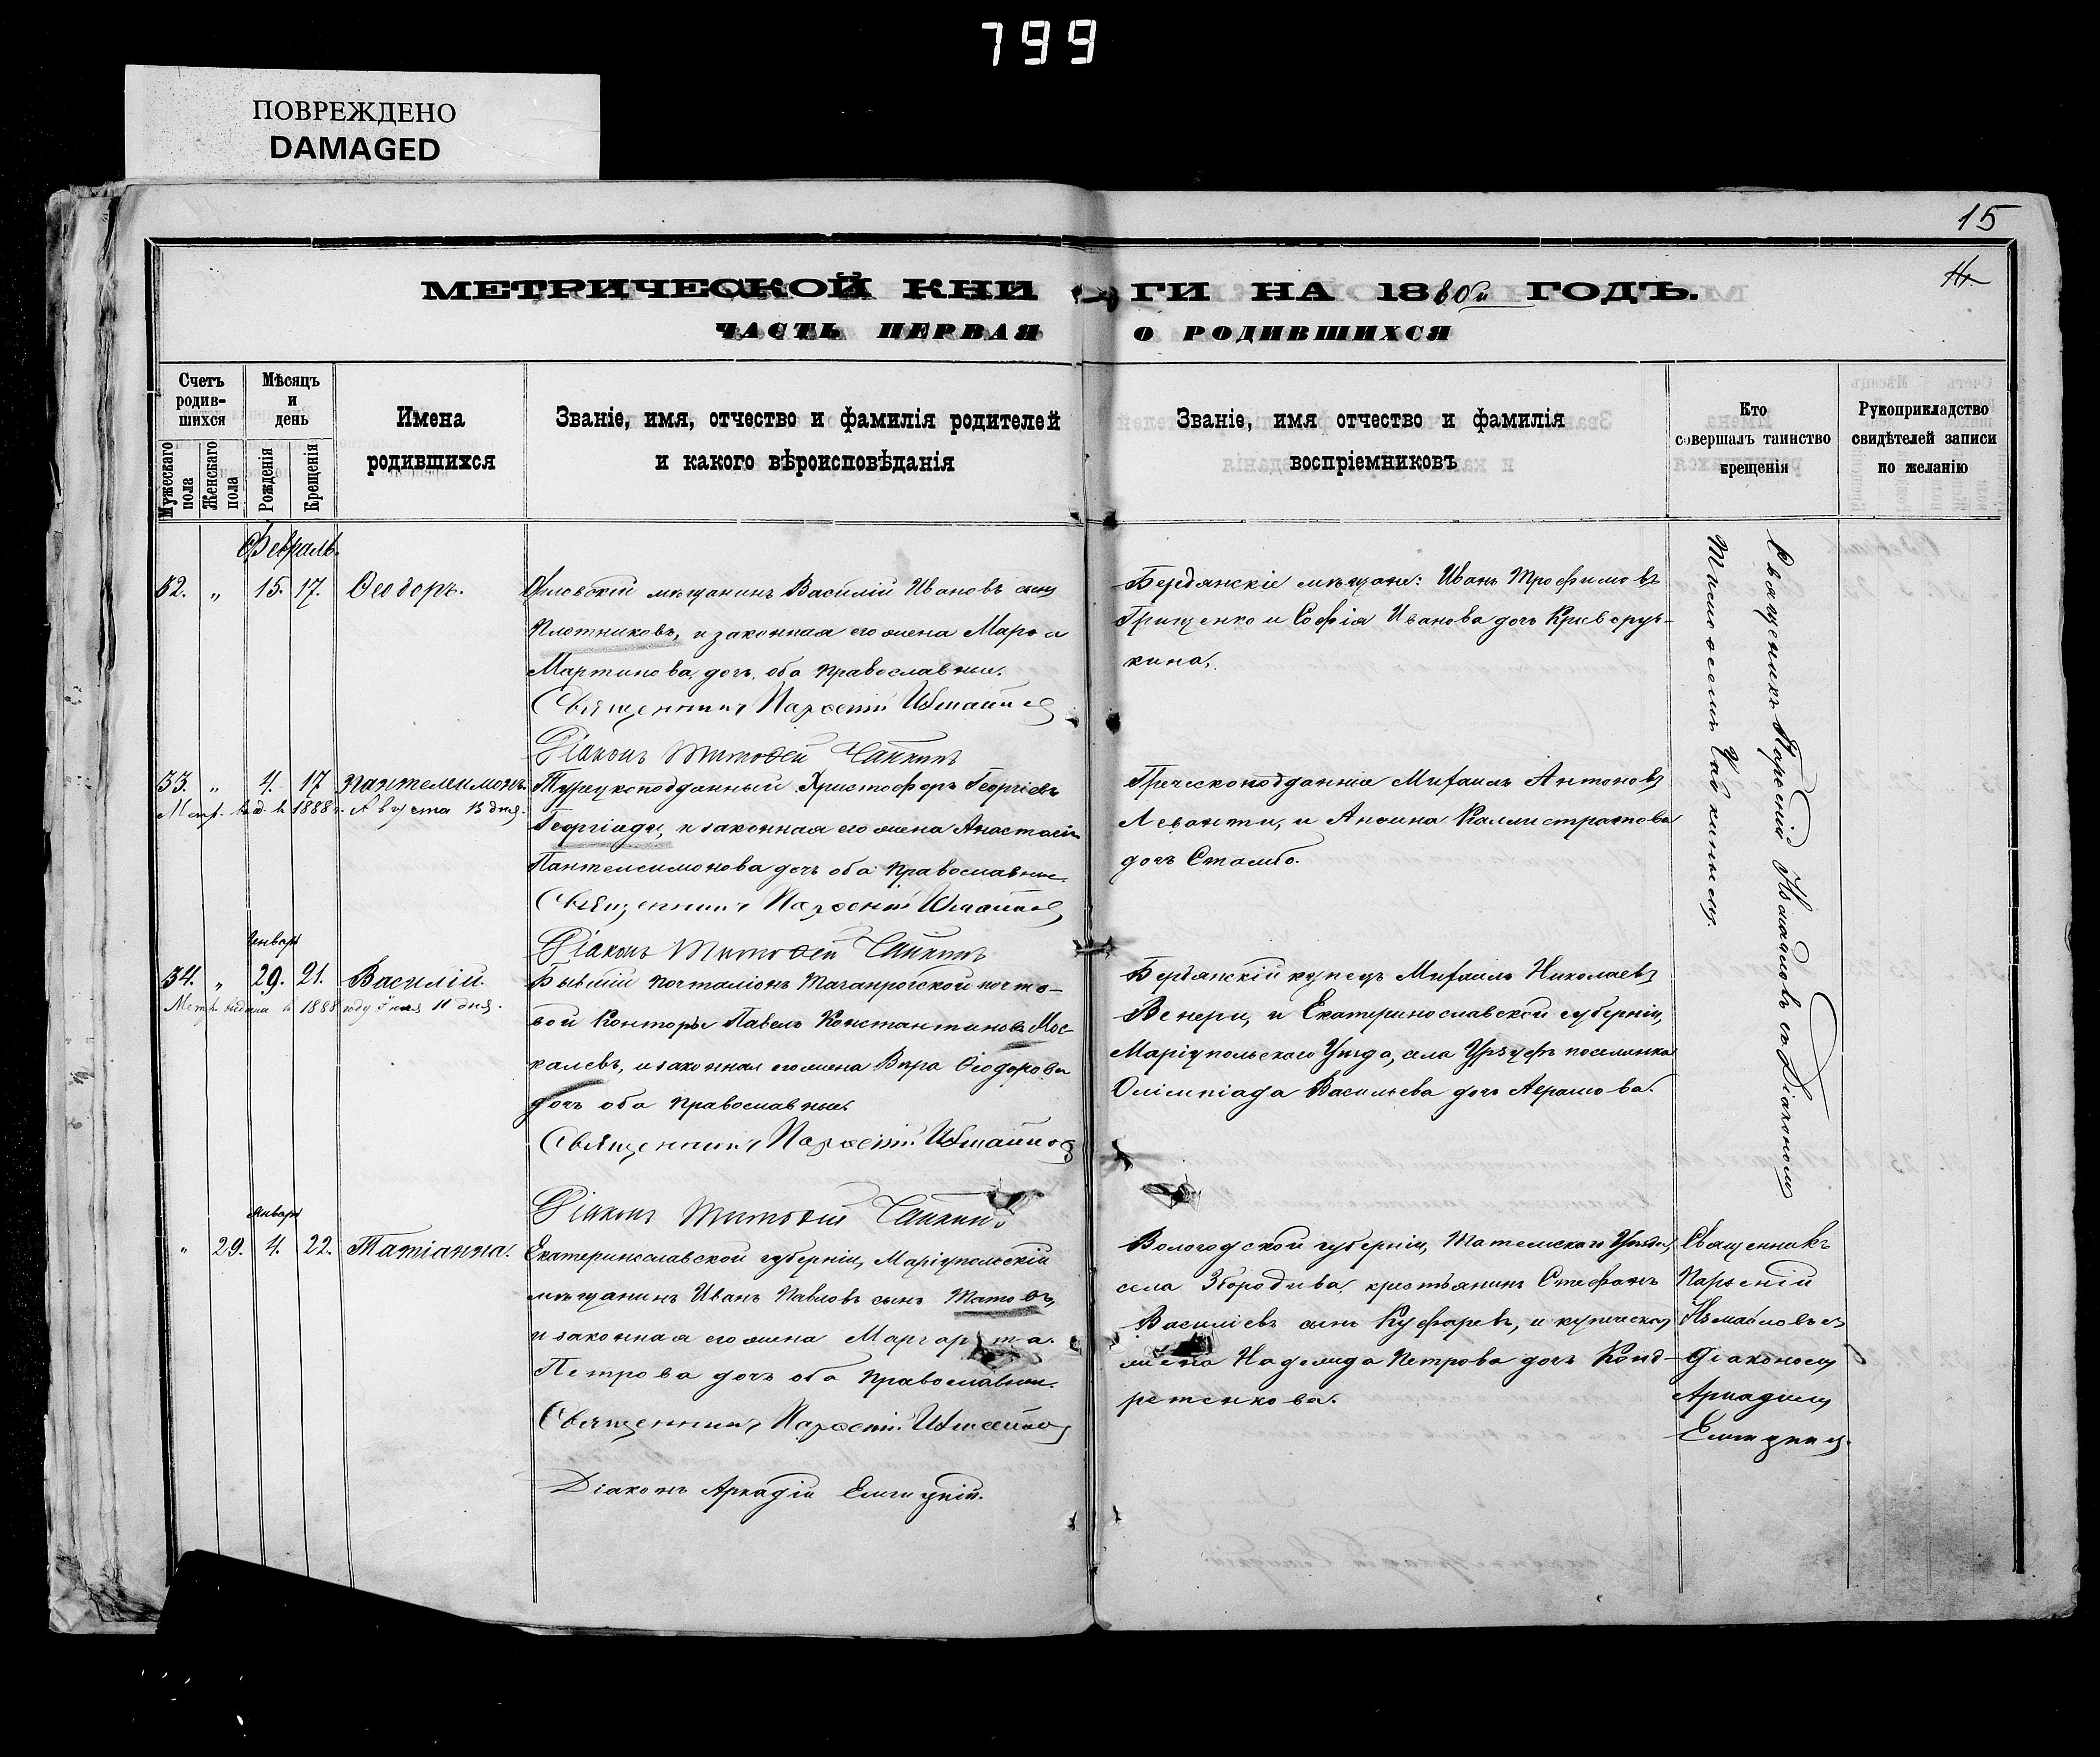 799
ПОВРЕЖДЕНО
DAMAGED
15
14
МЕТРИЧЕСКОЙ КНИГИ НА 1880й ГОДЪ.
ЧАСТЬ ПЕРВАЯ О РОДИВШИХСЯ
Счетъ родив-шихся
Мужескаго пола
Женскаго пола
Мѣсяцъ и день
Рожденія
Крещенія
Имена родившихся
Званіе, имя, отчество и фамилія родителей
и какого вѣроисповѣданія
Званіе, имя отчество и фамилія
воспріемниковъ
Кто
совершалъ таинство
крещенія
Рукоприкладство
свидѣтелей записи
по желанію
Февраль.
32. „ 15. 17. Ѳеодоръ.
мѣщанинъ Василій Ивановъ сынъ
Плотниковъ, и законная его жена Марѳа
Мартинова дочь, оба православные.
Священникъ Парѳеній Измаиловъ
Діаконъ Тимоѳей Чайкинъ
Бердянскіе мѣщане: Иванъ Трофимовъ
Грищенко и Софія Иванова дочь Криворуч-
кина.
Священникъ Парѳеній Измаиловъ съ Діакономъ
Тимоѳеемъ Чайкинымъ.
33. „ 4. 17. Пантелеимонъ.
Метр. выд. въ 1888 г. Августа 13 дня.
Турецкоподданный Христофоръ Георгіевъ
Георгіади, и законная его жена Анастасія
Пантелеимонова дочь оба православные.
Священникъ Парѳеній Измаиловъ
Діаконъ Тимоѳей Чайкинъ
Греческоподданніе Михаилъ Антоновъ
Леванти, и Анѳина Каллистратова
дочь Стамбо.
Январь
34. „ 29. 21. Василій.
Метр. выдана въ 1888 году Іюня 11 дня.
Бывшій почталіонъ Таганрогской почто-
вой Конторы Павелъ Константиновъ Мос-
калевъ, и законная его жена Вѣра Ѳеодорова
дочь оба православные.
Священникъ Парѳеній Измаиловъ
Діаконъ Тимоѳей Чайкинъ
Бердянскій купецъ Михаилъ Николаевъ
Венери, и Екатеринославской губерніи,
Маріупольскаго Уѣзда, села Урзуфъ поселянка
Олимпіада Васильева дочь Аврамова.
Январь
„ 29. 4. 22. Татіанна.
Екатеринославской губерніи, Маріупольскій
мѣщанинъ Иванъ Павловъ сынъ Татовъ,
и законная его жена Маргарита
Петрова дочь оба православные.
Священникъ Парѳеній Измаиловъ
Діаконъ Аркадій
Вологодской губерніи, Уѣзда,
села крестьянинъ Стефанъ
Васильевъ сынъ Куфаревъ, и купеческая
жена Надежда Петрова дочь Конд-
ратенкова.
Священникъ
Парѳеній
Измаиловъ съ
Діакономъ
Аркадіемъ